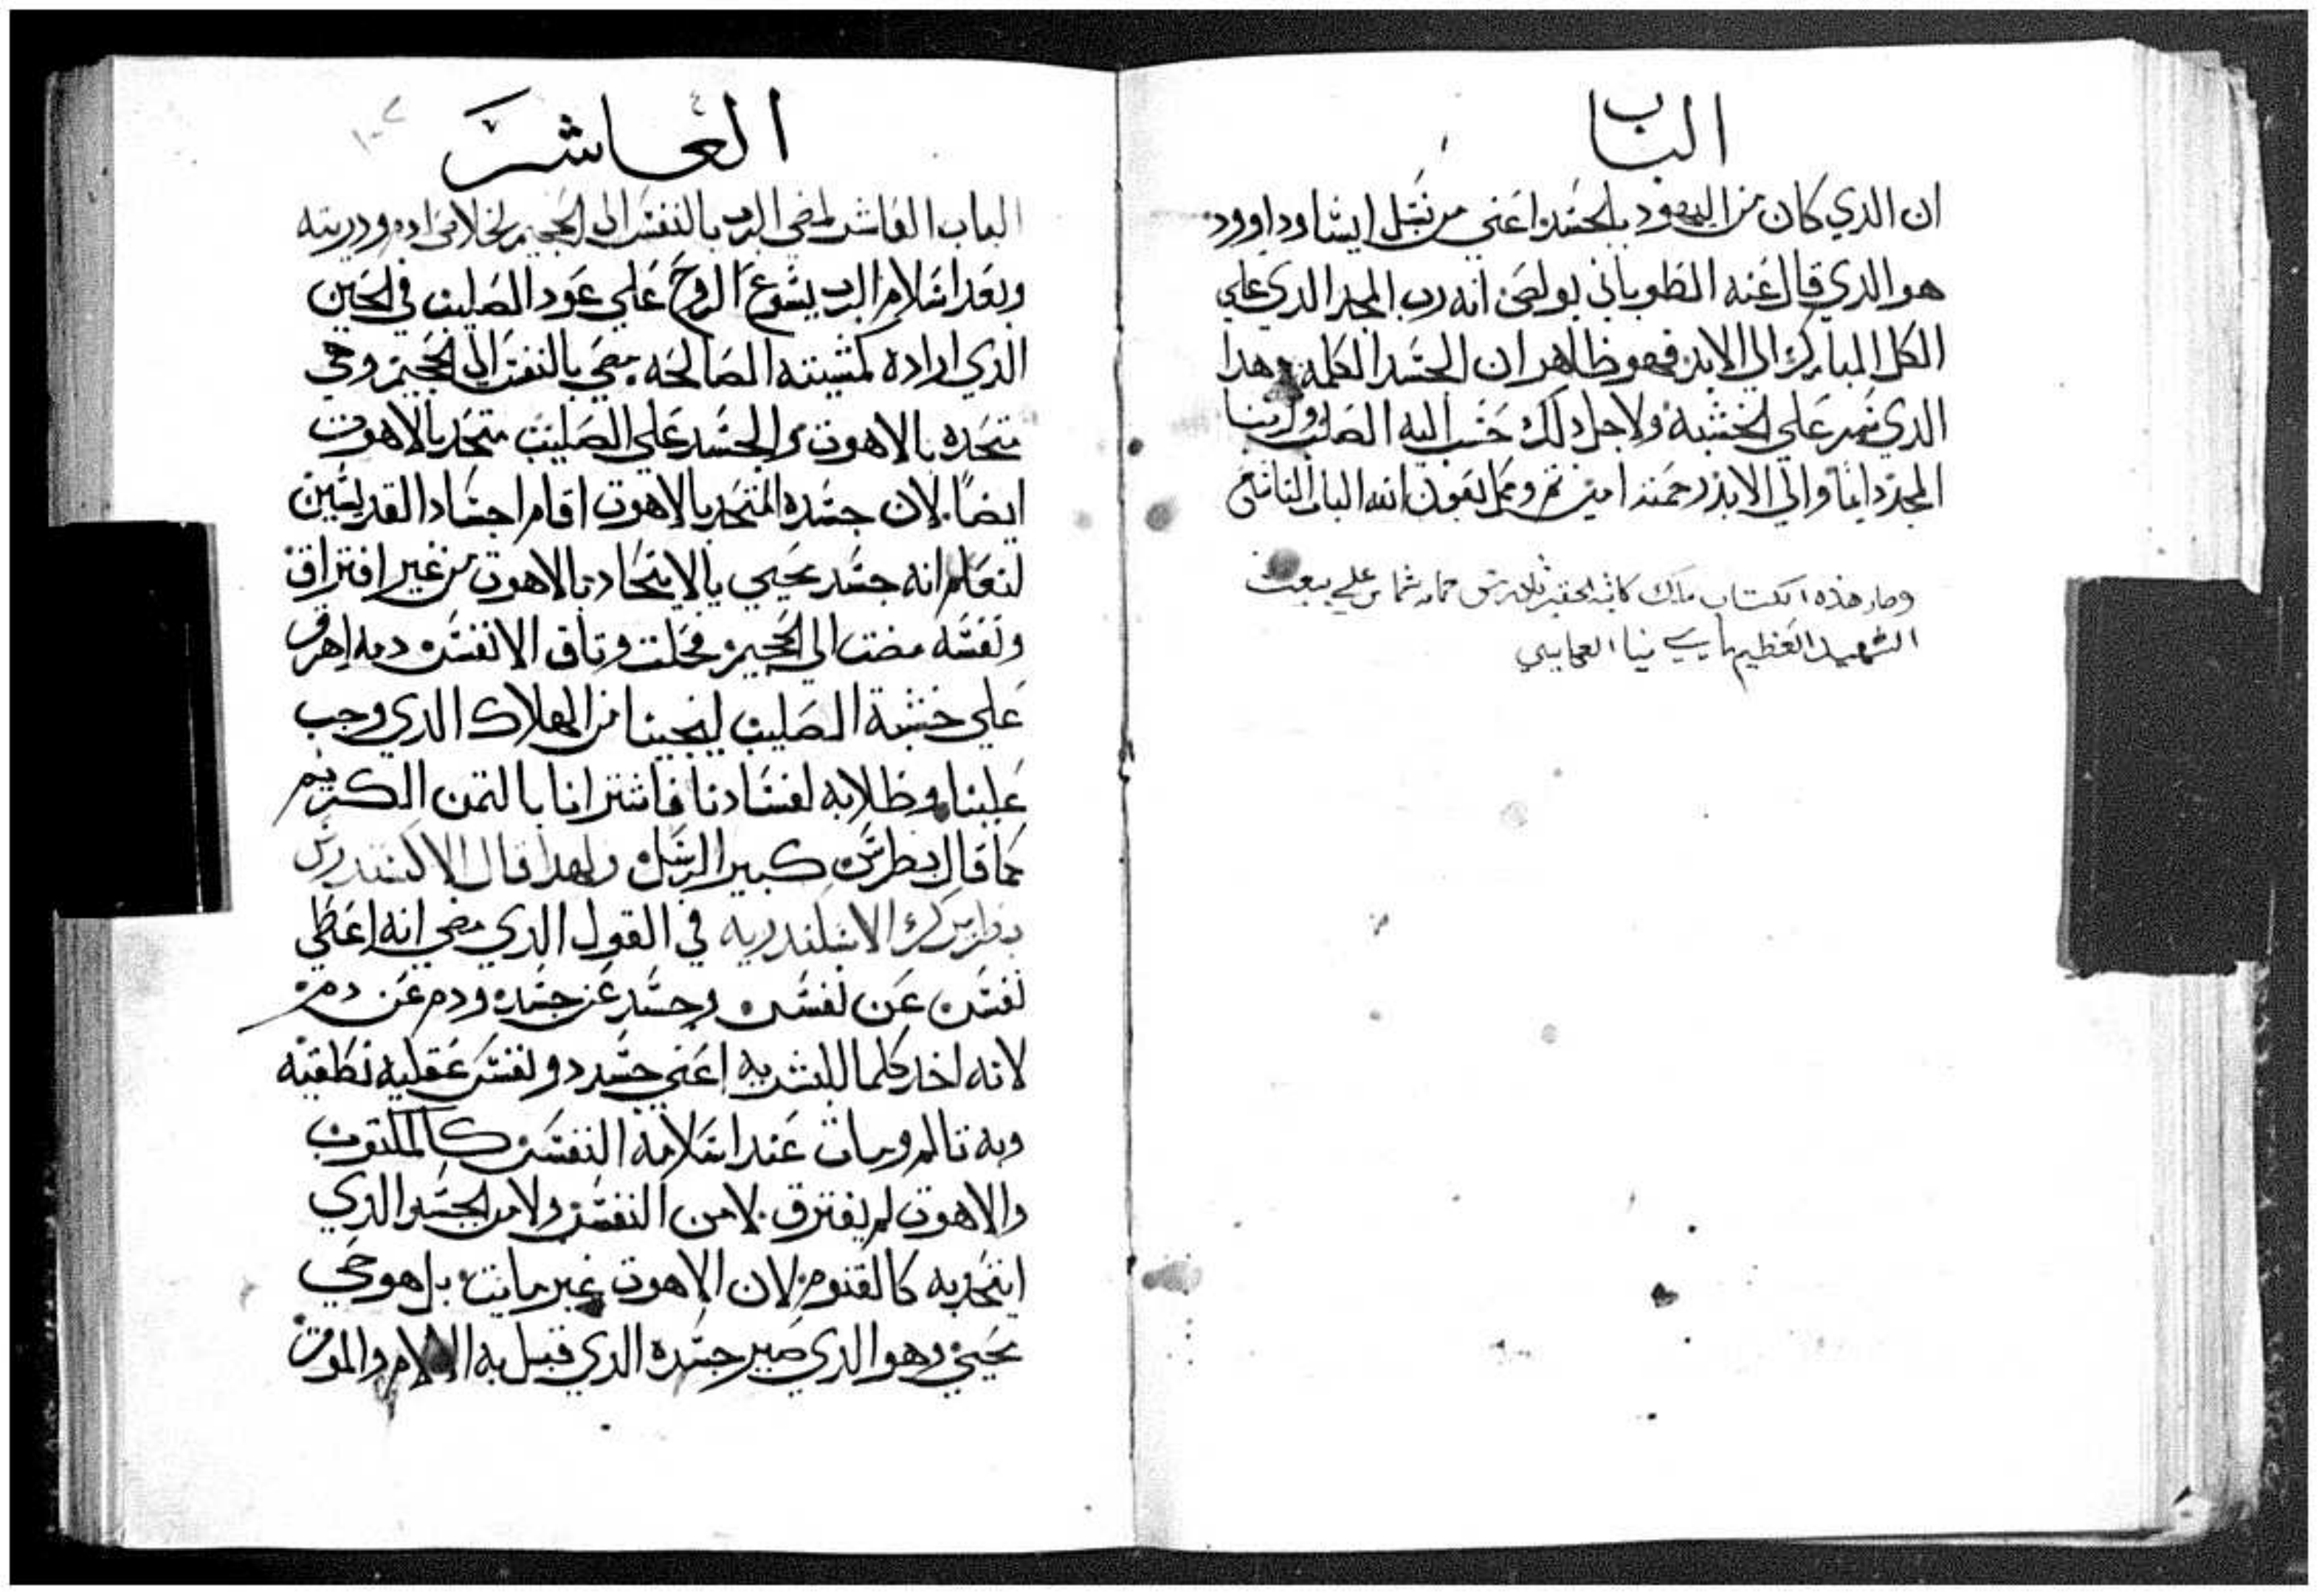 الباب
ان الدي كان من اليهود بالجسد اعني من نسل ايشا وداوود
هو الدي قال عنه الطوباني بولص انه رب المجد الدي علي
الكل المبارك الي الابد فهو ظاهر ان الجسد الكلمه وهدا
الدي سمر علي الخشبة ولاجل دلك حسب اليه الصلب ولربنا
المجد دايما والي الابد رحمته امين تم وكمل بعون الله الباب التاسع
وصار هذه الكتاب ملك كاتبه الحقير شماس علي بيعت
الشهيد العظيم ماري مينا العجايبي
العاشر
الباب العاشر لمضي الرب بالنفس الي الجحيم لخلاص ادم ودريته
وبعد اسلام الرب يسوع الروح علي عود الصليب في الحين
الدي اراده كمشيته الصالحه مضي بالنفس الي الجحيم وهي
متحده بالاهوت والجسد علي الصليب متحد بالاهوت
ايضا لان جسده المتحد بالاهوت اقام اجساد القديسين
لنعلم انه جسد محيي بالايتحاد بالاهوت من غير افتراق
ونفسه مضت الي الجحيم فحلت وتاق الانفس دمه اهرق
علي خشبة الصليب لينجينا من الهلاك الدي وجب
علينا وظلابه لفسادنا فاشترانا بالتمن الكريم
كما قال بطرس كبير الرسل ولهدا قال الاكسندرس
بطريرك الاسكندريه في القول الدي مضي انه اعطي
نفس عن نفس وجسد عن جسد ودم عن دم
لانه اخد كلما للبشريه اعني جسد ونفس عقليه نطقيه
وبه تالم ومات عند اسلامه النفس كالمكتوب
والاهوت لم يفترق لا من النفس ولا من الجسد الدي
ايتحد به كالقنوم لان الاهوت غير مايت بل هو حي
محيي وهو الدي صير جسده الدي قبل به الالام والموت